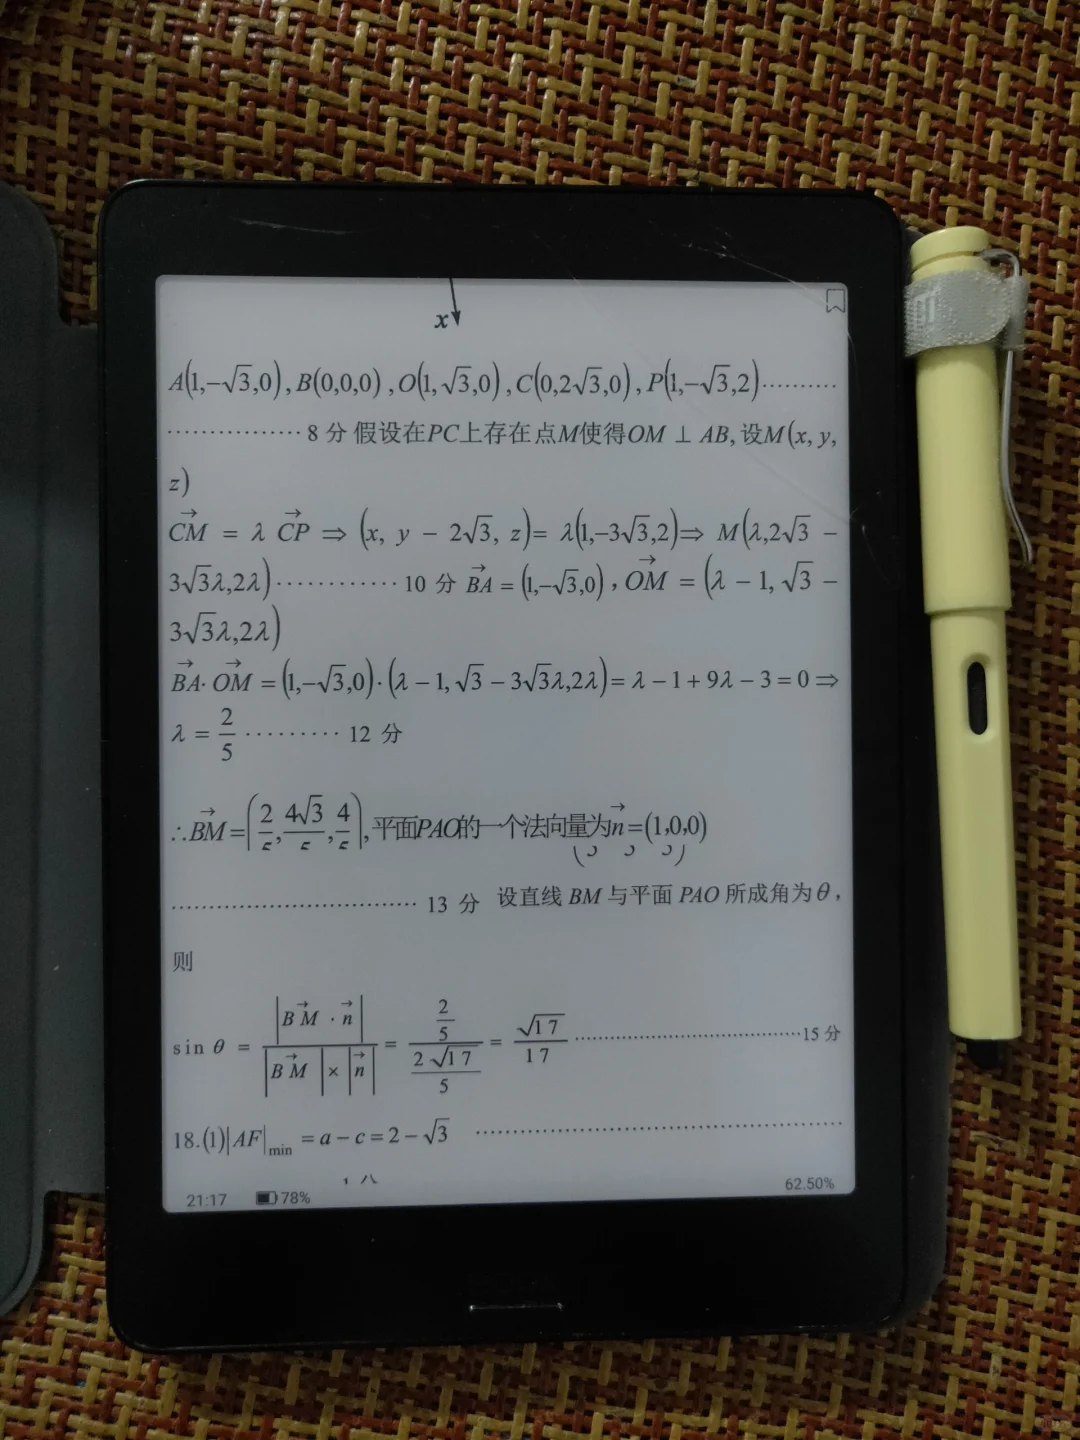 x
A(1,-√3,0) , B(0,0,0) , O(1, √3,0) , C(0,2√3,0) , P(1,-√3,2)··········
················ 8 分 假设在PC上存在点M使得OM ⊥ AB, 设M(x, y,
z)
CM⃗ = λ CP⃗ ⇒ (x, y − 2√3, z)= λ(1,-3√3,2)⇒ M(λ,2√3 −
3√3λ,2λ)············ 10 分 BA⃗ = (1,-√3,0) , OM⃗ = (λ − 1, √3 −
3√3λ,2λ)
BA⃗· OM⃗ = (1,-√3,0)·(λ − 1, √3 − 3√3λ,2λ)= λ − 1 + 9λ − 3 = 0 ⇒
λ = 2/5 ········· 12 分
∴BM⃗=(2/5, 4√3/5, 4/5), 平面PAO的一个法向量为n⃗=(1,0,0)
······························ 13 分 设直线 BM 与平面 PAO 所成角为θ ,
则
sin θ = |BM⃗ · n⃗| / |BM⃗| × |n⃗| = (2/5) / (2√17/5) = √17/17 ······························15 分
18.(1)|AF|min = a − c = 2 − √3 ··································
21:17 78% 62.50%